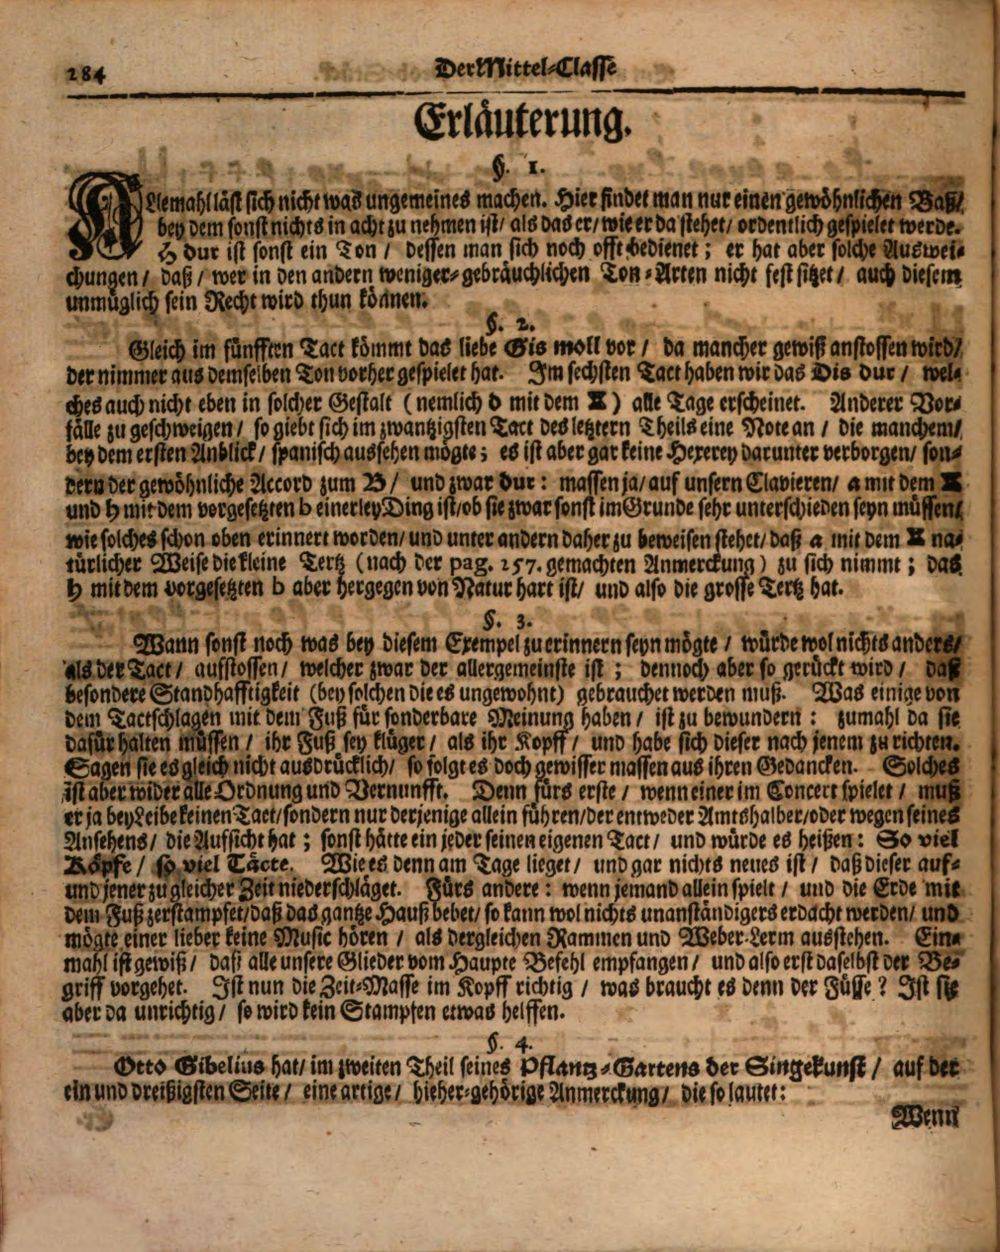 284
Der Mittel-Classe
Erläuterung.
§. 1.
Allemahl läst sich nicht was ungemeines machen. Hier findet man nur einen gewöhnlichen Baß/
bey dem sonst nichts in acht zu nehmen ist/ als das er/ wie er da stehet/ ordentlich gespielet werde.
H dur ist sonst ein Ton / dessen man sich noch offt bedienet; er hat aber solche Auswei-
chungen / daß / wer in den andern weniger-gebräuchlichen Ton-Arten nicht fest sitzet / auch diesem
unmüglich sein Recht wird thun können.
§. 2.
Gleich im fünfften Tact kömmt das liebe Gis moll vor / da mancher gewiß anstossen wird/
der nimmer aus demselben Ton vorher gespielet hat. Im sechsten Tact haben wir das Dis dur / wel-
ches auch nicht eben in solcher Gestalt ( nemlich d mit dem X ) alle Tage erscheinet. Anderer Vor-
fälle zu geschweigen / so giebt sich im zwantzigsten Tact des letztern Theils eine Note an / die manchem/
bey dem ersten Anblick / spanisch aussehen mögte; es ist aber gar keine Hexerey darunter verborgen/ son-
dern der gewöhnliche Accord zum B / und zwar dur: massen ja/ auf unsern Clavieren/ a mit dem X
und h mit dem vorgesetzten b einerley Ding ist/ ob sie zwar sonst im Grunde sehr unterschieden seyn müssen/
wie solches schon oben erinnert worden/ und unter andern daher zu beweisen stehet/ daß a mit dem X na-
türlicher Weise die kleine Tertz (nach der pag. 257. gemachten Anmerckung ) zu sich nimmt ; das
h mit dem vorgesetzten b aber hergegen von Natur hart ist/ und also die grosse Tertz hat.
§. 3.
Wann sonst noch was bey diesem Exempel zu erinnern seyn mögte / würde wol nichts anders/
als der Tact/ aufstossen/ welcher zwar der allergemeinste ist ; dennoch aber so gerückt wird / daß
besondere Standhafftigkeit (bey solchen die es ungewohnt) gebrauchet werden muß. Was einige von
dem Tactschlagen mit dem Fuß für sonderbare Meinung haben / ist zu bewundern : zumahl da sie
dafür halten müssen / ihr Fuß sey klüger / als ihr Kopff / und habe sich dieser nach jenem zu richten.
Sagen sie es gleich nicht ausdrücklich/ so folgt es doch gewisser massen aus ihren Gedancken. Solches
ist aber wider alle Ordnung und Vernunfft. Denn fürs erste / wenn einer im Concert spielet / muß
er ja bey Leibe keinen Tact/ sondern nur derjenige allein führen/ der entweder Amtshalber/ oder wegen seines
Ansehens / die Aufsicht hat ; sonst hätte ein jeder seinen eigenen Tact / und würde es heißen: So viel
Köpfe / so viel Täcte. Wie es denn am Tage lieget/ und gar nichts neues ist / daß dieser auf-
und jener zu gleicher Zeit niederschläget. Fürs andere : wenn jemand allein spielt / und die Erde mit
dem Fuß zerstampfet/ daß das gantze Hauß bebet/ so kann wol nichts unanständigers erdacht werden/ und
mögte einer lieber keine Music hören / als dergleichen Rammen und Weber-Lerm ausstehen. Ein-
mahl ist gewiß / daß alle unsere Glieder vom Haupte Befehl empfangen / und also erst daselbst der Be-
griff vorgehet. Ist nun die Zeit-Masse im Kopff richtig / was braucht es denn der Füsse ? Ist sie
aber da unrichtig / so wird kein Stampfen etwas helffen.
§. 4.
Otto Gibelius hat/ im zweiten Theil seines Pflantz-Gartens der Singekunst / auf der
ein und dreißigsten Seite / eine artige / hieher-gehörige Anmerckung/ die so lautet:
Wenn